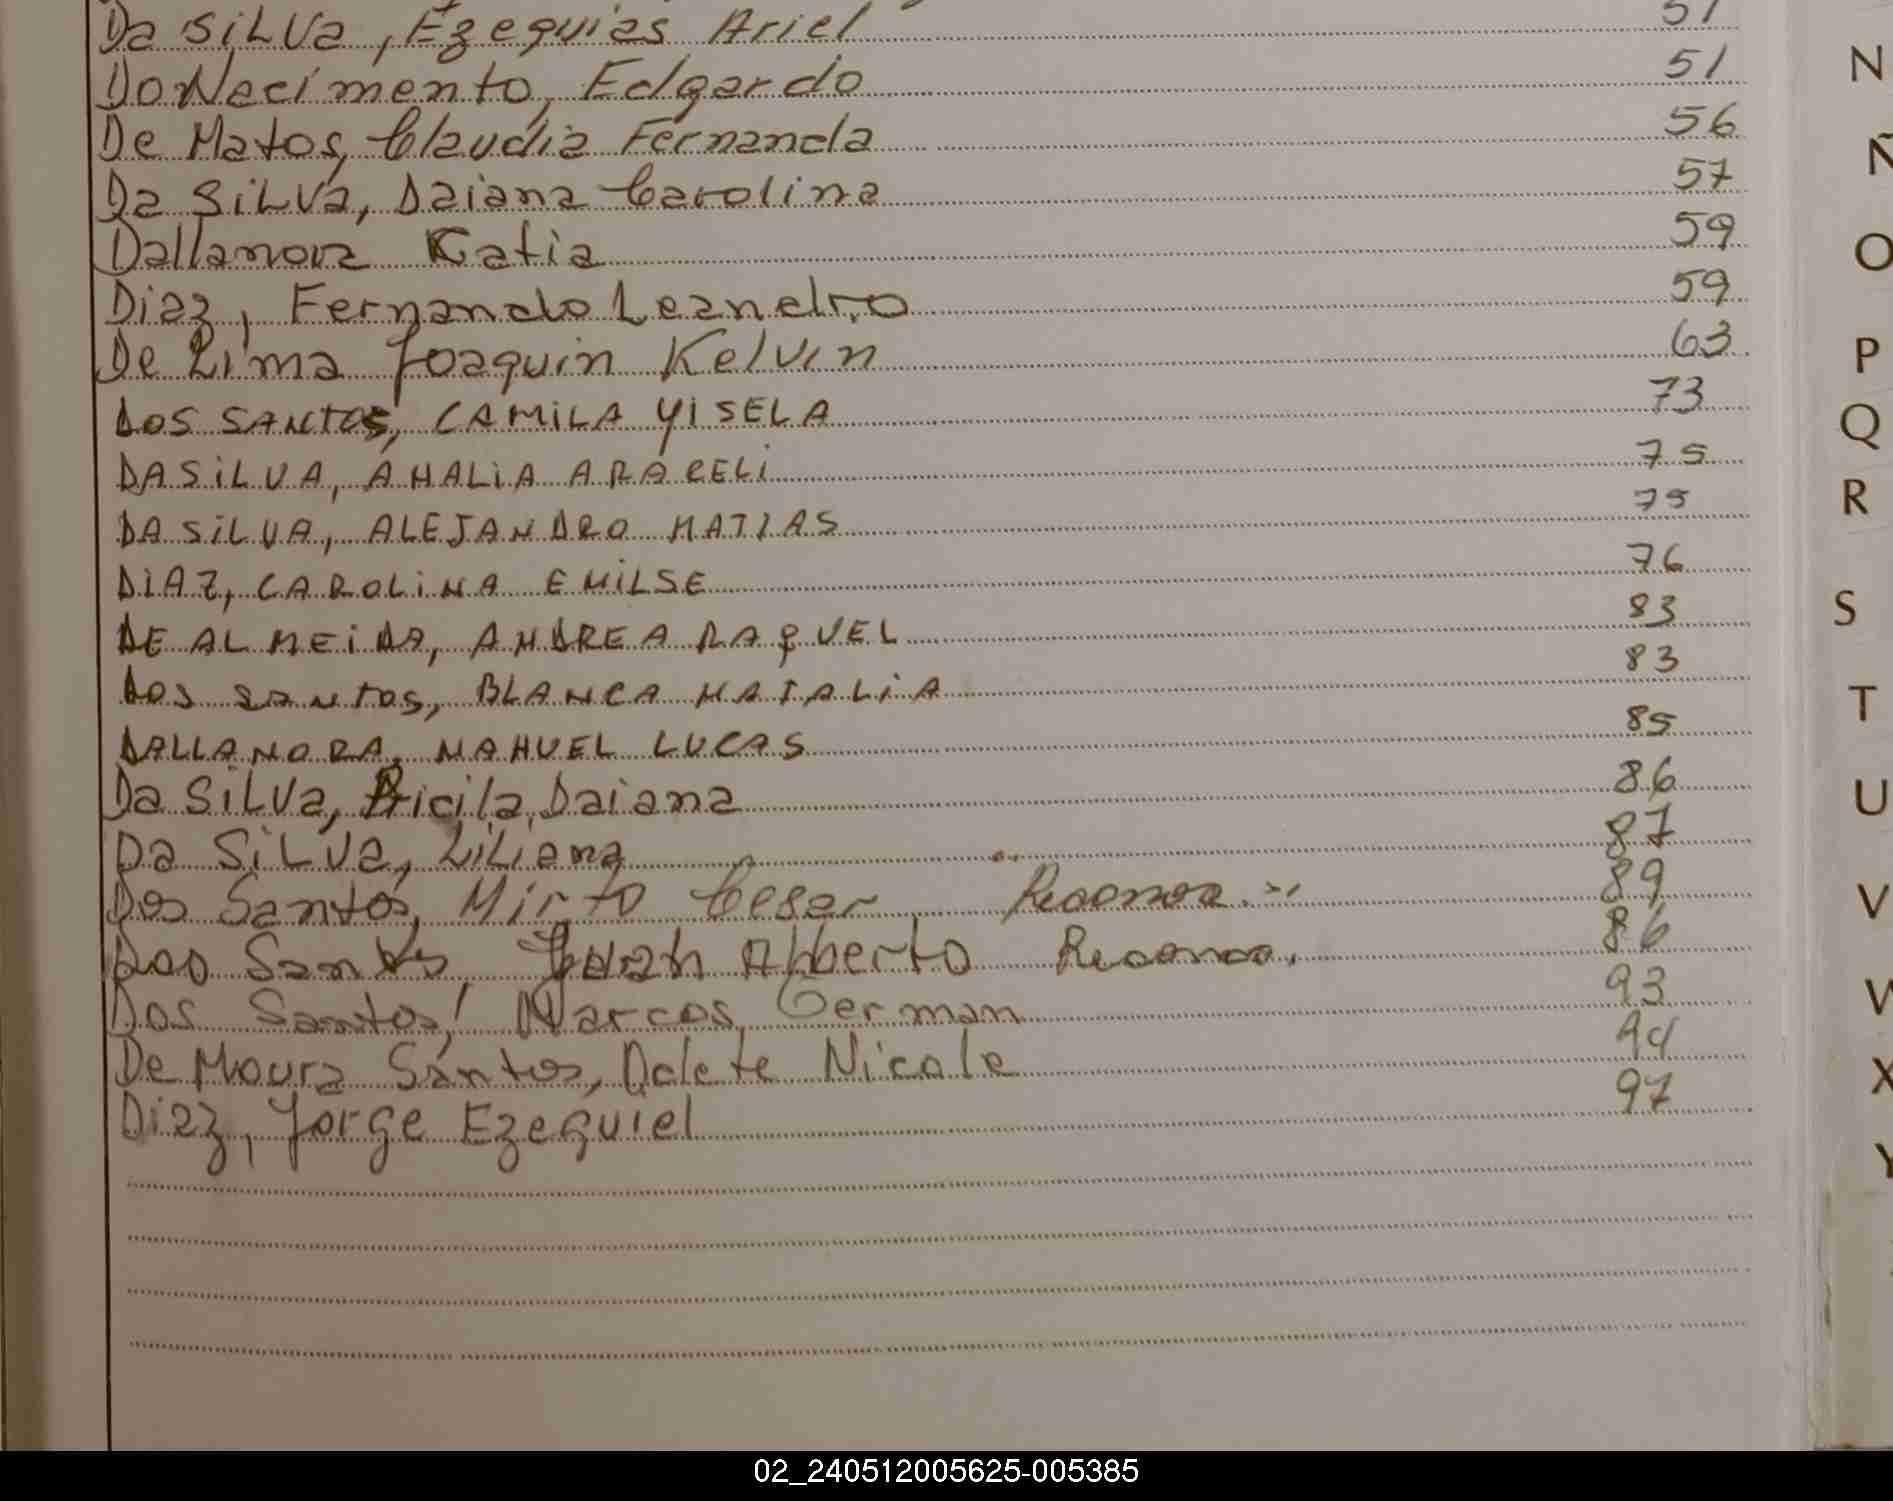 Da SiLVa, Ezequias Ariel 51
Do Necimento, Edgardo 51
De Matos, Claudia Fernanda 56
Da SiLVa, Daiana Carolina 57
Dallanora Katia 59
Diaz, Fernando Leandro 59
De Lima Joaquin Kelvin 63
DOS SANTOS, CAMILA YISELA 73
DASILVA, ANALIA ARACELI 75
DA SILVA, ALEJANDRO MATIAS 75
DIAZ, CAROLINA EMILSE 76
DE ALMEIDA, ANDREA RAQUEL 83
DOS SANTOS, BLANCA NATALIA 83
DALLANORA, NAHUEL LUCAS 85
Da SiLVa, Pricila, Daiana 86
Da SiLVa, LiLiana 87
Dos Santos, Mirto Cesar 89
Dos Santos, Juan Alberto 86
Dos Santos, Marcos, German 93
De Moura Santos, Dalete Nicole 94
Diaz, Jorge Ezequiel 97
N
Ñ
O
P
Q
R
S
T
U
V
W
X
Y
02_240512005625-005385